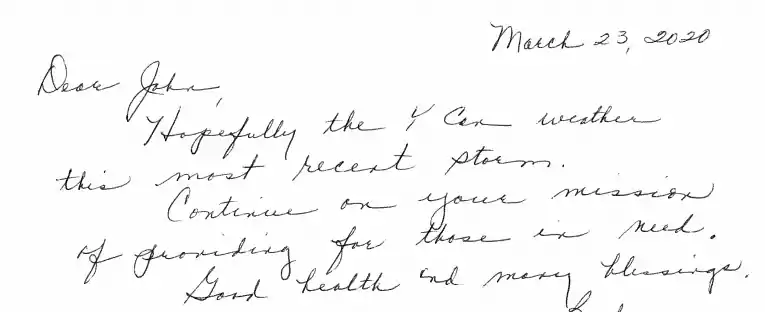 March 23, 2020
Dear John,
Hopefully the Y can weather
this most recent storm.
Continue on your mission
of providing for those in need.
Good health and many blessings.